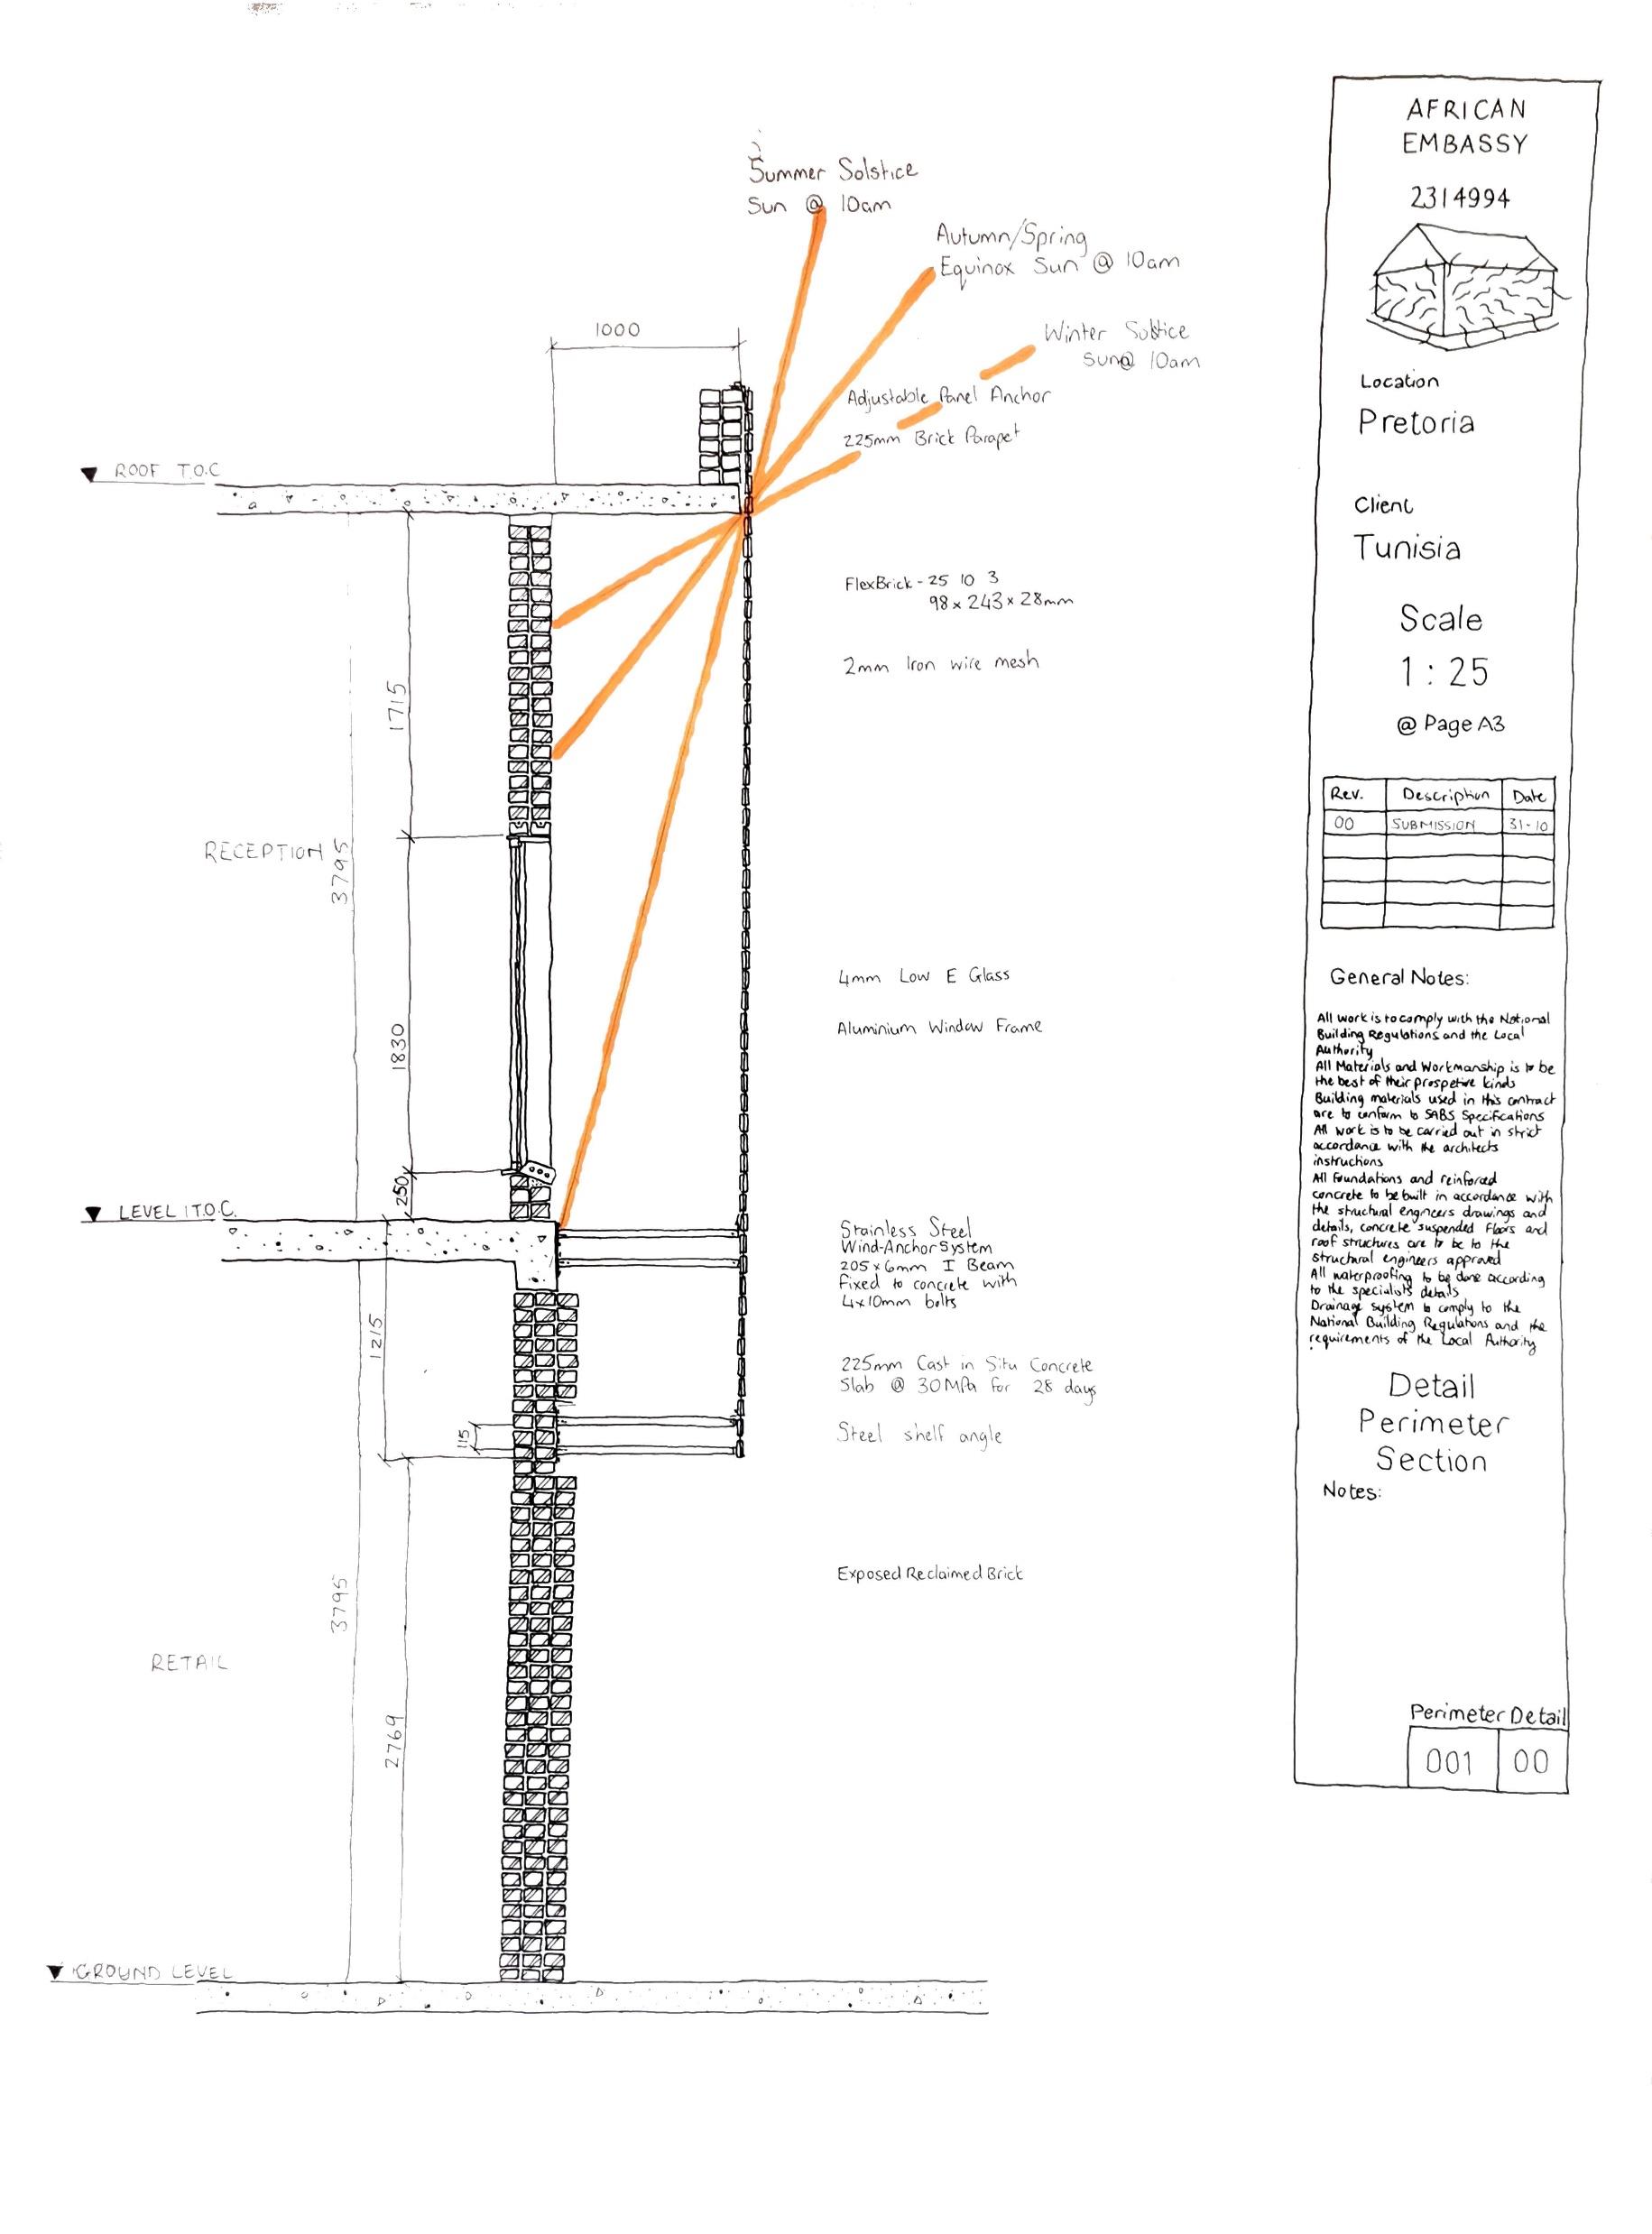 Summer Solstice
Sun @ 10am
Autumn/Spring
Equinox Sun @ 10am
Winter Solstice
Sun@ 10am
1000
Adjustable Panel Anchor
225mm Brick Parapet
ROOF T.O.C
FlexBrick - 25 10 3
98 x 243 x 28mm
2mm Iron wire mesh
1715
RECEPTION
3795
4mm Low E Glass
Aluminium Window Frame
1830
250
LEVEL 1 T.O.C.
Stainless Steel
Wind-Anchor System
205 x 6mm I Beam
Fixed to concrete with
4x10mm bolts
1215
225mm Cast in Situ Concrete
Slab @ 30MPa for 28 days
115
Steel shelf angle
Exposed Reclaimed Brick
3795
RETAIL
2769
GROUND LEVEL
AFRICAN
EMBASSY
2314994
Location
Pretoria
Client
Tunisia
Scale
1 : 25
@ Page A3
Rev. Description Date
00 SUBMISSION 31-10
General Notes:
All work is to comply with the National
Building Regulations and the Local
Authority
All Materials and Workmanship is to be
the best of their prospetive kinds
Building materials used in this contract
are to conform to SABS Specifications
All work is to be carried out in strict
accordance with the architects
instructions
All foundations and reinforced
concrete to be built in accordance with
the structural engineers drawings and
details, concrete suspended floors and
roof structures are to be to the
structural engineers approved
All waterproofing to be done according
to the specialists details
Drainage system to comply to the
National Building Regulations and the
requirements of the Local Authority
Detail
Perimeter
Section
Notes:
Perimeter Detail
001 00